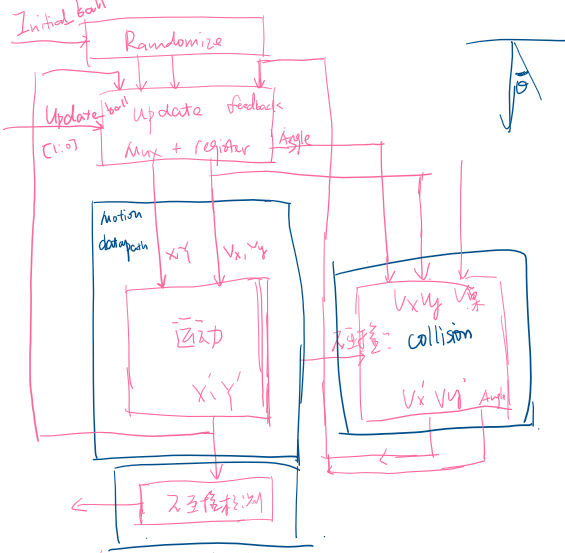 Initial_ball
Ramdomize
Update_ball
[1:0]
update
feedback
Mux + register
Angle
θ
Motion
datapath
X,Y
Vx, Vy
运动
X', Y'
Vx Vy
collision
Vx' Vy' Angle